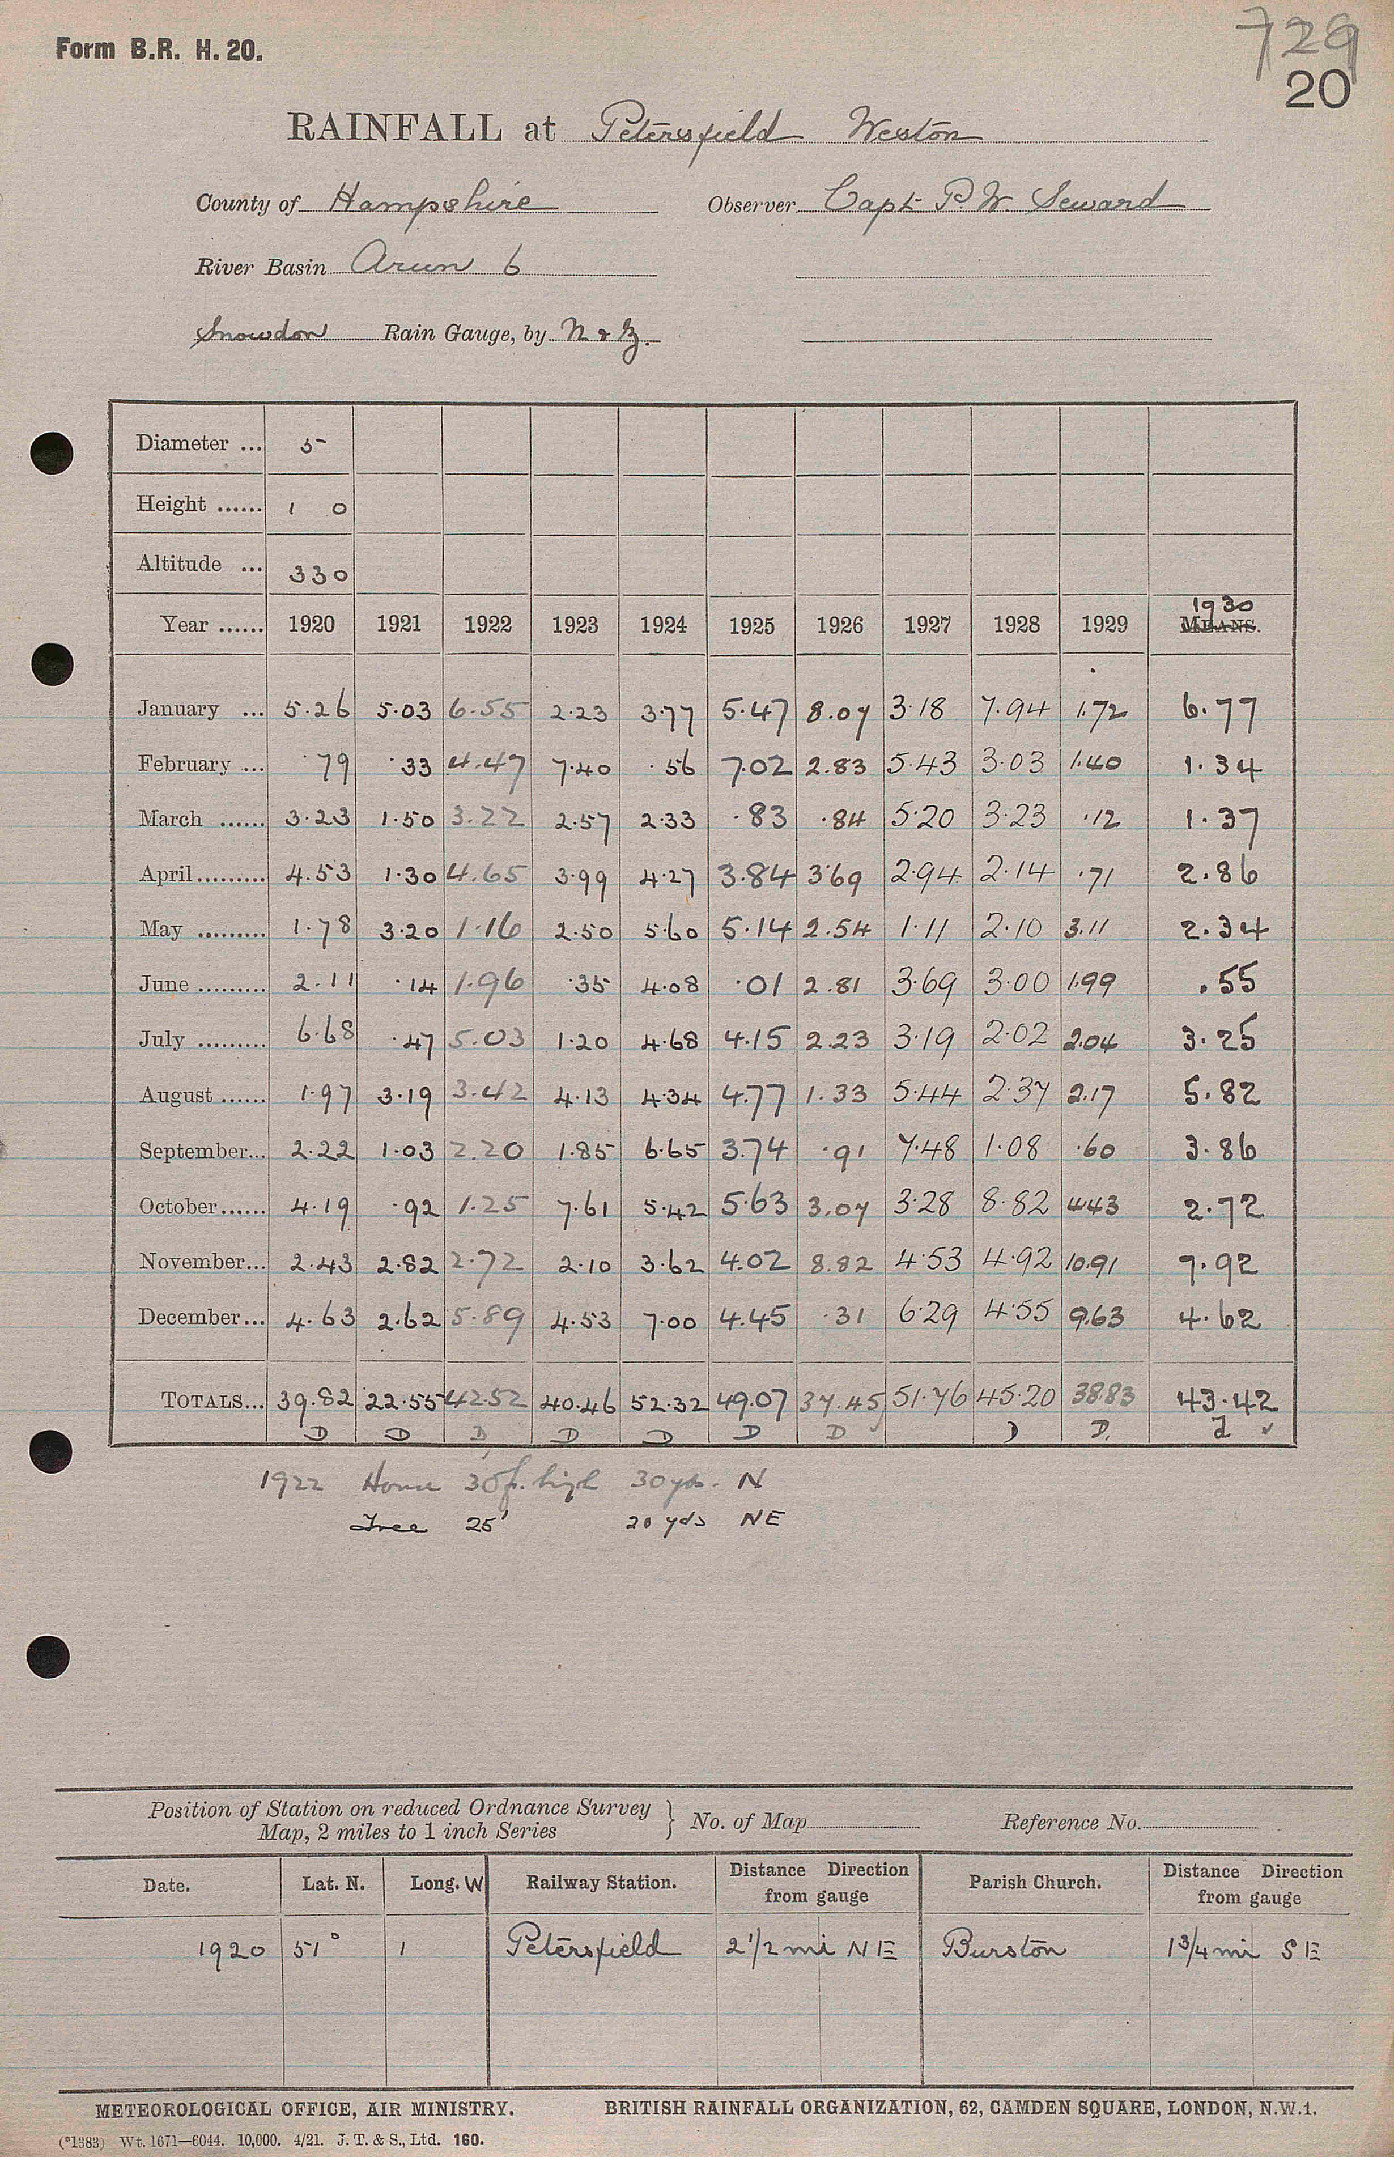 Form B.R. H. 20.
729
20
RAINFALL at Petersfield Weston
County of Hampshire Observer Capt P. W. Seward
River Basin Arun 6
Snowdon Rain Gauge, by N & Z.
Diameter ... 5
Height ...... 1 0
Altitude ... 330
Year ...... 1920 1921 1922 1923 1924 1925 1926 1927 1928 1929 1930 MEANS.
January ... 5.26 5.03 6.55 2.23 3.77 5.47 8.07 3.18 7.94 1.72 6.77
February ... .79 .33 4.47 7.40 .56 7.02 2.83 5.43 3.03 1.40 1.34
March ...... 3.23 1.50 3.22 2.57 2.33 .83 .84 5.20 3.23 .12 1.37
April ......... 4.53 1.30 4.65 3.99 4.27 3.84 3.69 2.94 2.14 .71 2.86
May ......... 1.78 3.20 1.16 2.50 5.60 5.14 2.54 1.11 2.10 3.11 2.34
June ......... 2.11 .14 1.96 .35 4.08 .01 2.81 3.69 3.00 1.99 .55
July ......... 6.68 .47 5.03 1.20 4.68 4.15 2.23 3.19 2.02 2.04 3.25
August ...... 1.97 3.19 3.42 4.13 4.34 4.77 1.33 5.44 2.37 2.17 5.82
September... 2.22 1.03 2.20 1.85 6.65 3.74 .91 7.48 1.08 .60 3.86
October ...... 4.19 .92 1.25 7.61 5.42 5.63 3.07 3.28 8.82 4.43 2.72
November... 2.43 2.82 2.72 2.10 3.62 4.02 8.82 4.53 4.92 10.91 7.92
December... 4.63 2.62 5.89 4.53 7.00 4.45 .31 6.29 4.55 9.63 4.62
TOTALS... 39.82 22.55 42.52 40.46 52.32 49.07 37.45 51.76 45.20 38.83 43.42
D D D D D D D D D
1922 House 30ft. high 30yds. N
Tree 25' 20 yds NE
Position of Station on reduced Ordnance Survey Map, 2 miles to 1 inch Series } No. of Map Reference No.
Date. Lat. N. Long. W Railway Station. Distance Direction from gauge Parish Church. Distance Direction from gauge
1920 51° 1 Petersfield 2 1/2 mi NE Burston 1 3/4 mi SE
METEOROLOGICAL OFFICE, AIR MINISTRY. BRITISH RAINFALL ORGANIZATION, 62, CAMDEN SQUARE, LONDON, N.W.1.
(*1383) Wt. 1671—6044. 10,000. 4/21. J. T. & S., Ltd. 160.